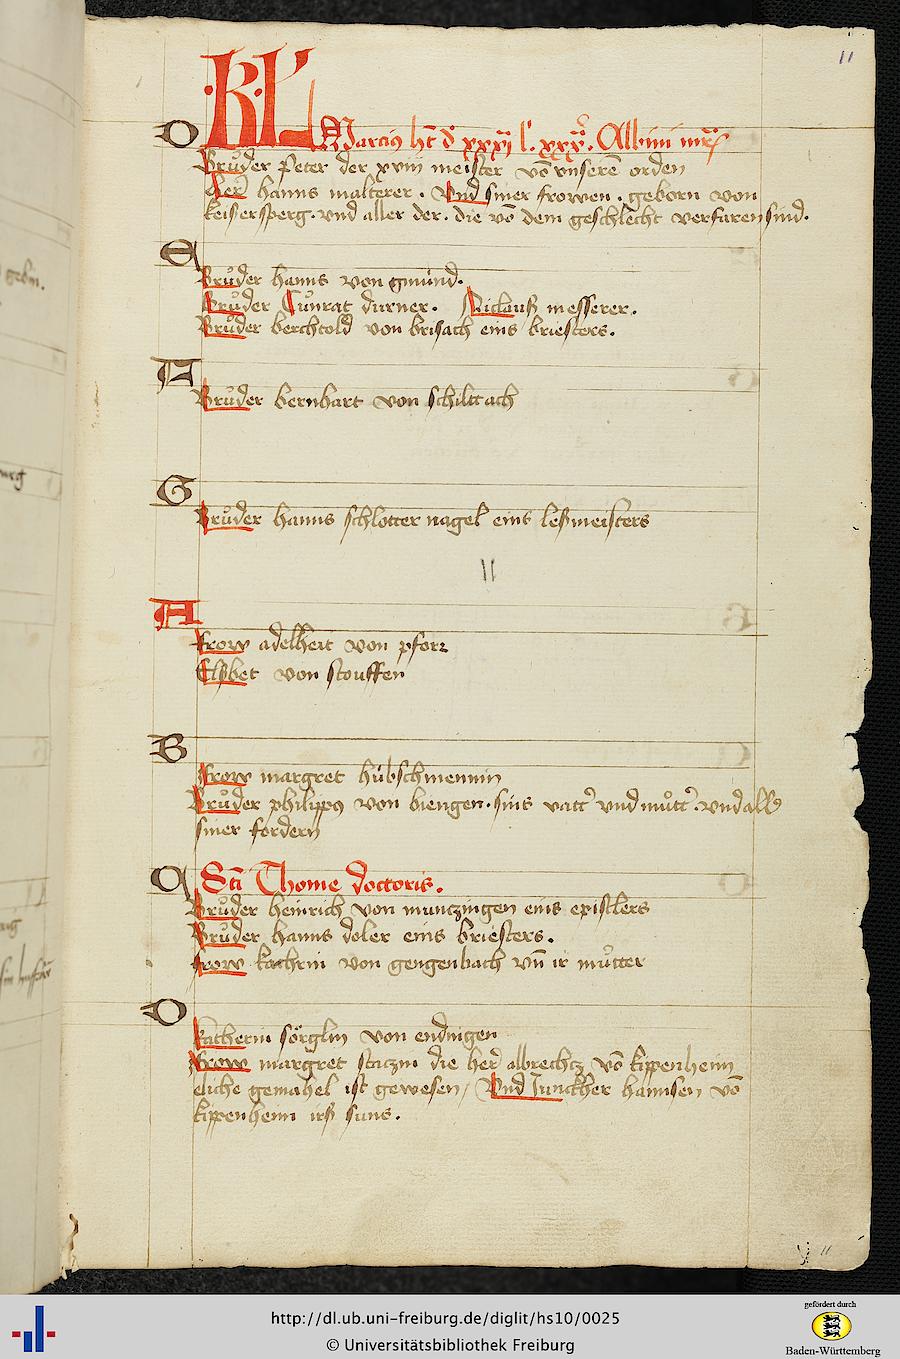 11
KL Marcius hēt d' xxxj l'. xxx. Albini mr̄s
D
Bruͦder Peter der xviii meister võ vnserē orden
Her hanns malterer . Vnd siner frowen . geborn von
keisersperg . vnd aller der . die võ dem geschlecht verfaren sind .
E
Bruͦder hanns von gmúnd .
Bruͦder Cuͦnrat durner . Niclauß messerer .
Bruͦder berchtold von brisach eins briesters .
F
Bruͦder bernhart von schiltach
G
Bruͦder hanns schlotter nagel eins leßmeisters
11
A
Frow adelheit von pforr
Elsbet von stouffen
B
Frow margret húbschmennin
Bruͦder philippus von biengen . sins vatt' vnd muͦtt' . vnd all'
siner fordern
C
Sctī Thome doctoris .
Bruͦder heinrich von muntzingen eins epistlers
Bruͦder hanns doler eins briesters .
Frow kathrin von gengenbach vn̄ ir muͦtter
D
katherin sörglin von endingen
Frow margret statzin die her albrechtz võ kippenheim
eliche gemahel ist gewesen / Vnd Junckher hannsen võ
kippenhein irs suns .
11
http://dl.ub.uni-freiburg.de/diglit/hs10/0025
© Universitätsbibliothek Freiburg
gefördert durch
Baden-Württemberg